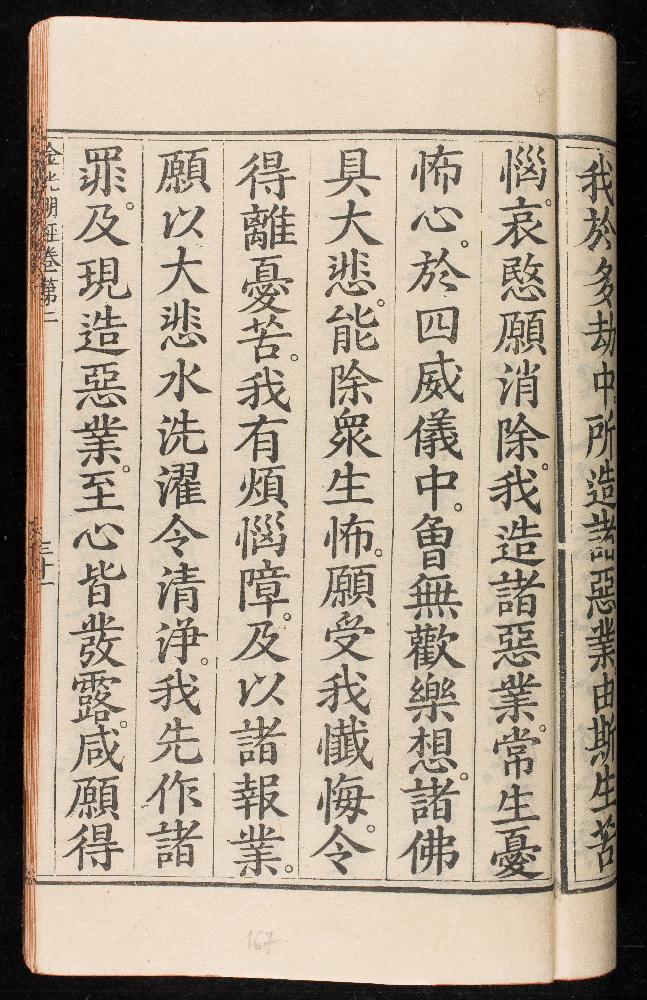 我於多劫中。所造諸惡業由斯生苦
惱。哀愍願消除。我造諸惡業。常生憂
怖心。於四威儀中。曾無歡樂想。諸佛
具大悲。能除衆生怖。願受我懺悔。令
得離憂苦。我有煩惱障。及以諸報業。
願以大悲水洗濯令清淨。我先作諸
罪。及現造惡業。至心皆發露。咸願得
金光明經卷第二
三十一
167